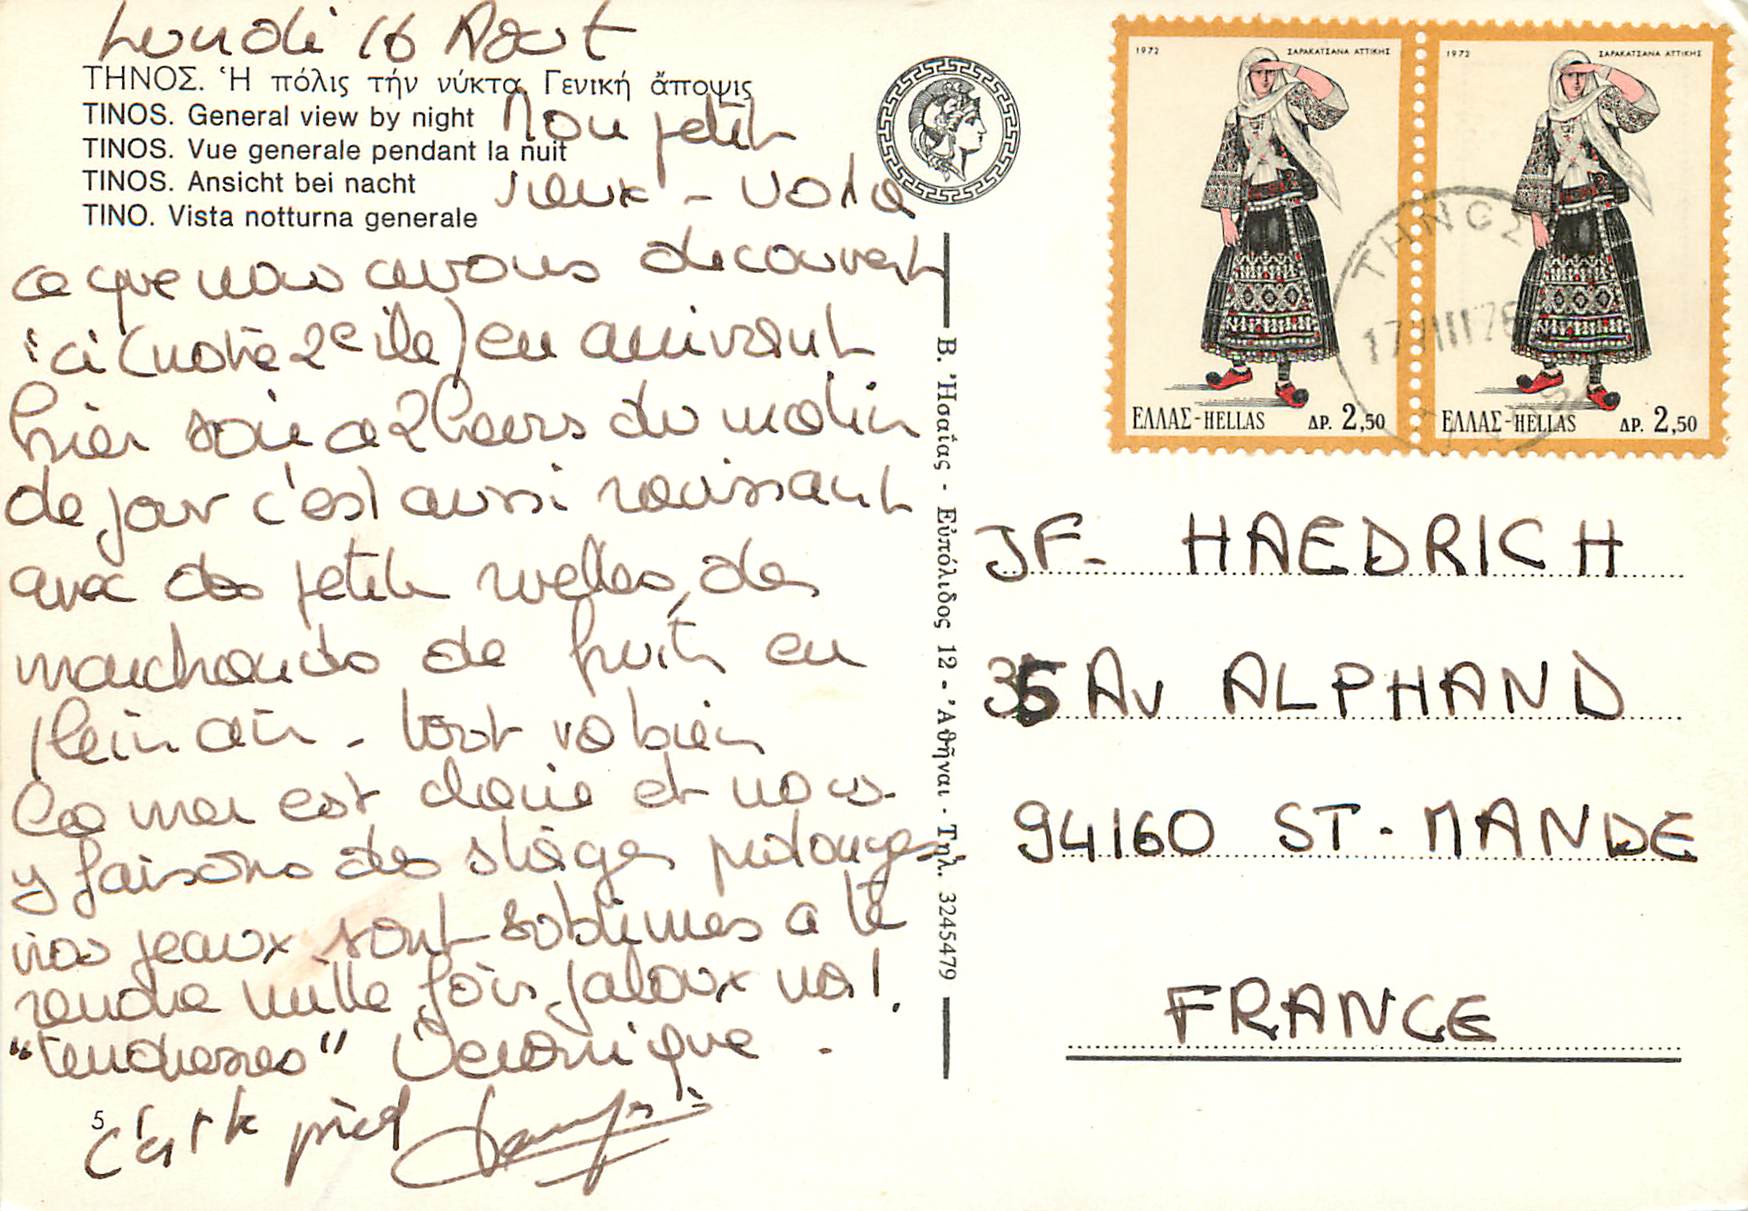 Lundi 16 Août
ΤΗΝΟΣ. Ἡ πόλις τήν νύκτα. Γενική ἄποψις
TINOS. General view by night
TINOS. Vue generale pendant la nuit
TINOS. Ansicht bei nacht
TINO. Vista notturna generale
Mon petit
vieux - voila
ce que nous avons decouvert
ici (notre 2e ile) en arrivant
hier soir a 2 heures du matin
de jour c'est aussi ravissant
avec des petites ruelles, des
marchands de fruits en
plein air - tout va bien
la mer est claire et nous
y faisons des stages prolonges
nos peaux sont sublimes a te
rendre mille fois jaloux na!.
"tendresses" Veronique.
c'est le pied
5
Β. Ἡσαΐας - Εὐπόλιδος 12 - Ἀθῆναι - Τηλ. 3245479
1972 ΣΑΡΑΚΑΤΣΑΝΑ ΑΤΤΙΚΗΣ
ΕΛΛΑΣ-HELLAS ΔΡ. 2,50
1972 ΣΑΡΑΚΑΤΣΑΝΑ ΑΤΤΙΚΗΣ
ΕΛΛΑΣ-HELLAS ΔΡ. 2,50
ΤΗΝΟΣ
17 VIII 76
JF. HAEDRICH
35 Av ALPHAND
94160 ST. MANDE
FRANCE